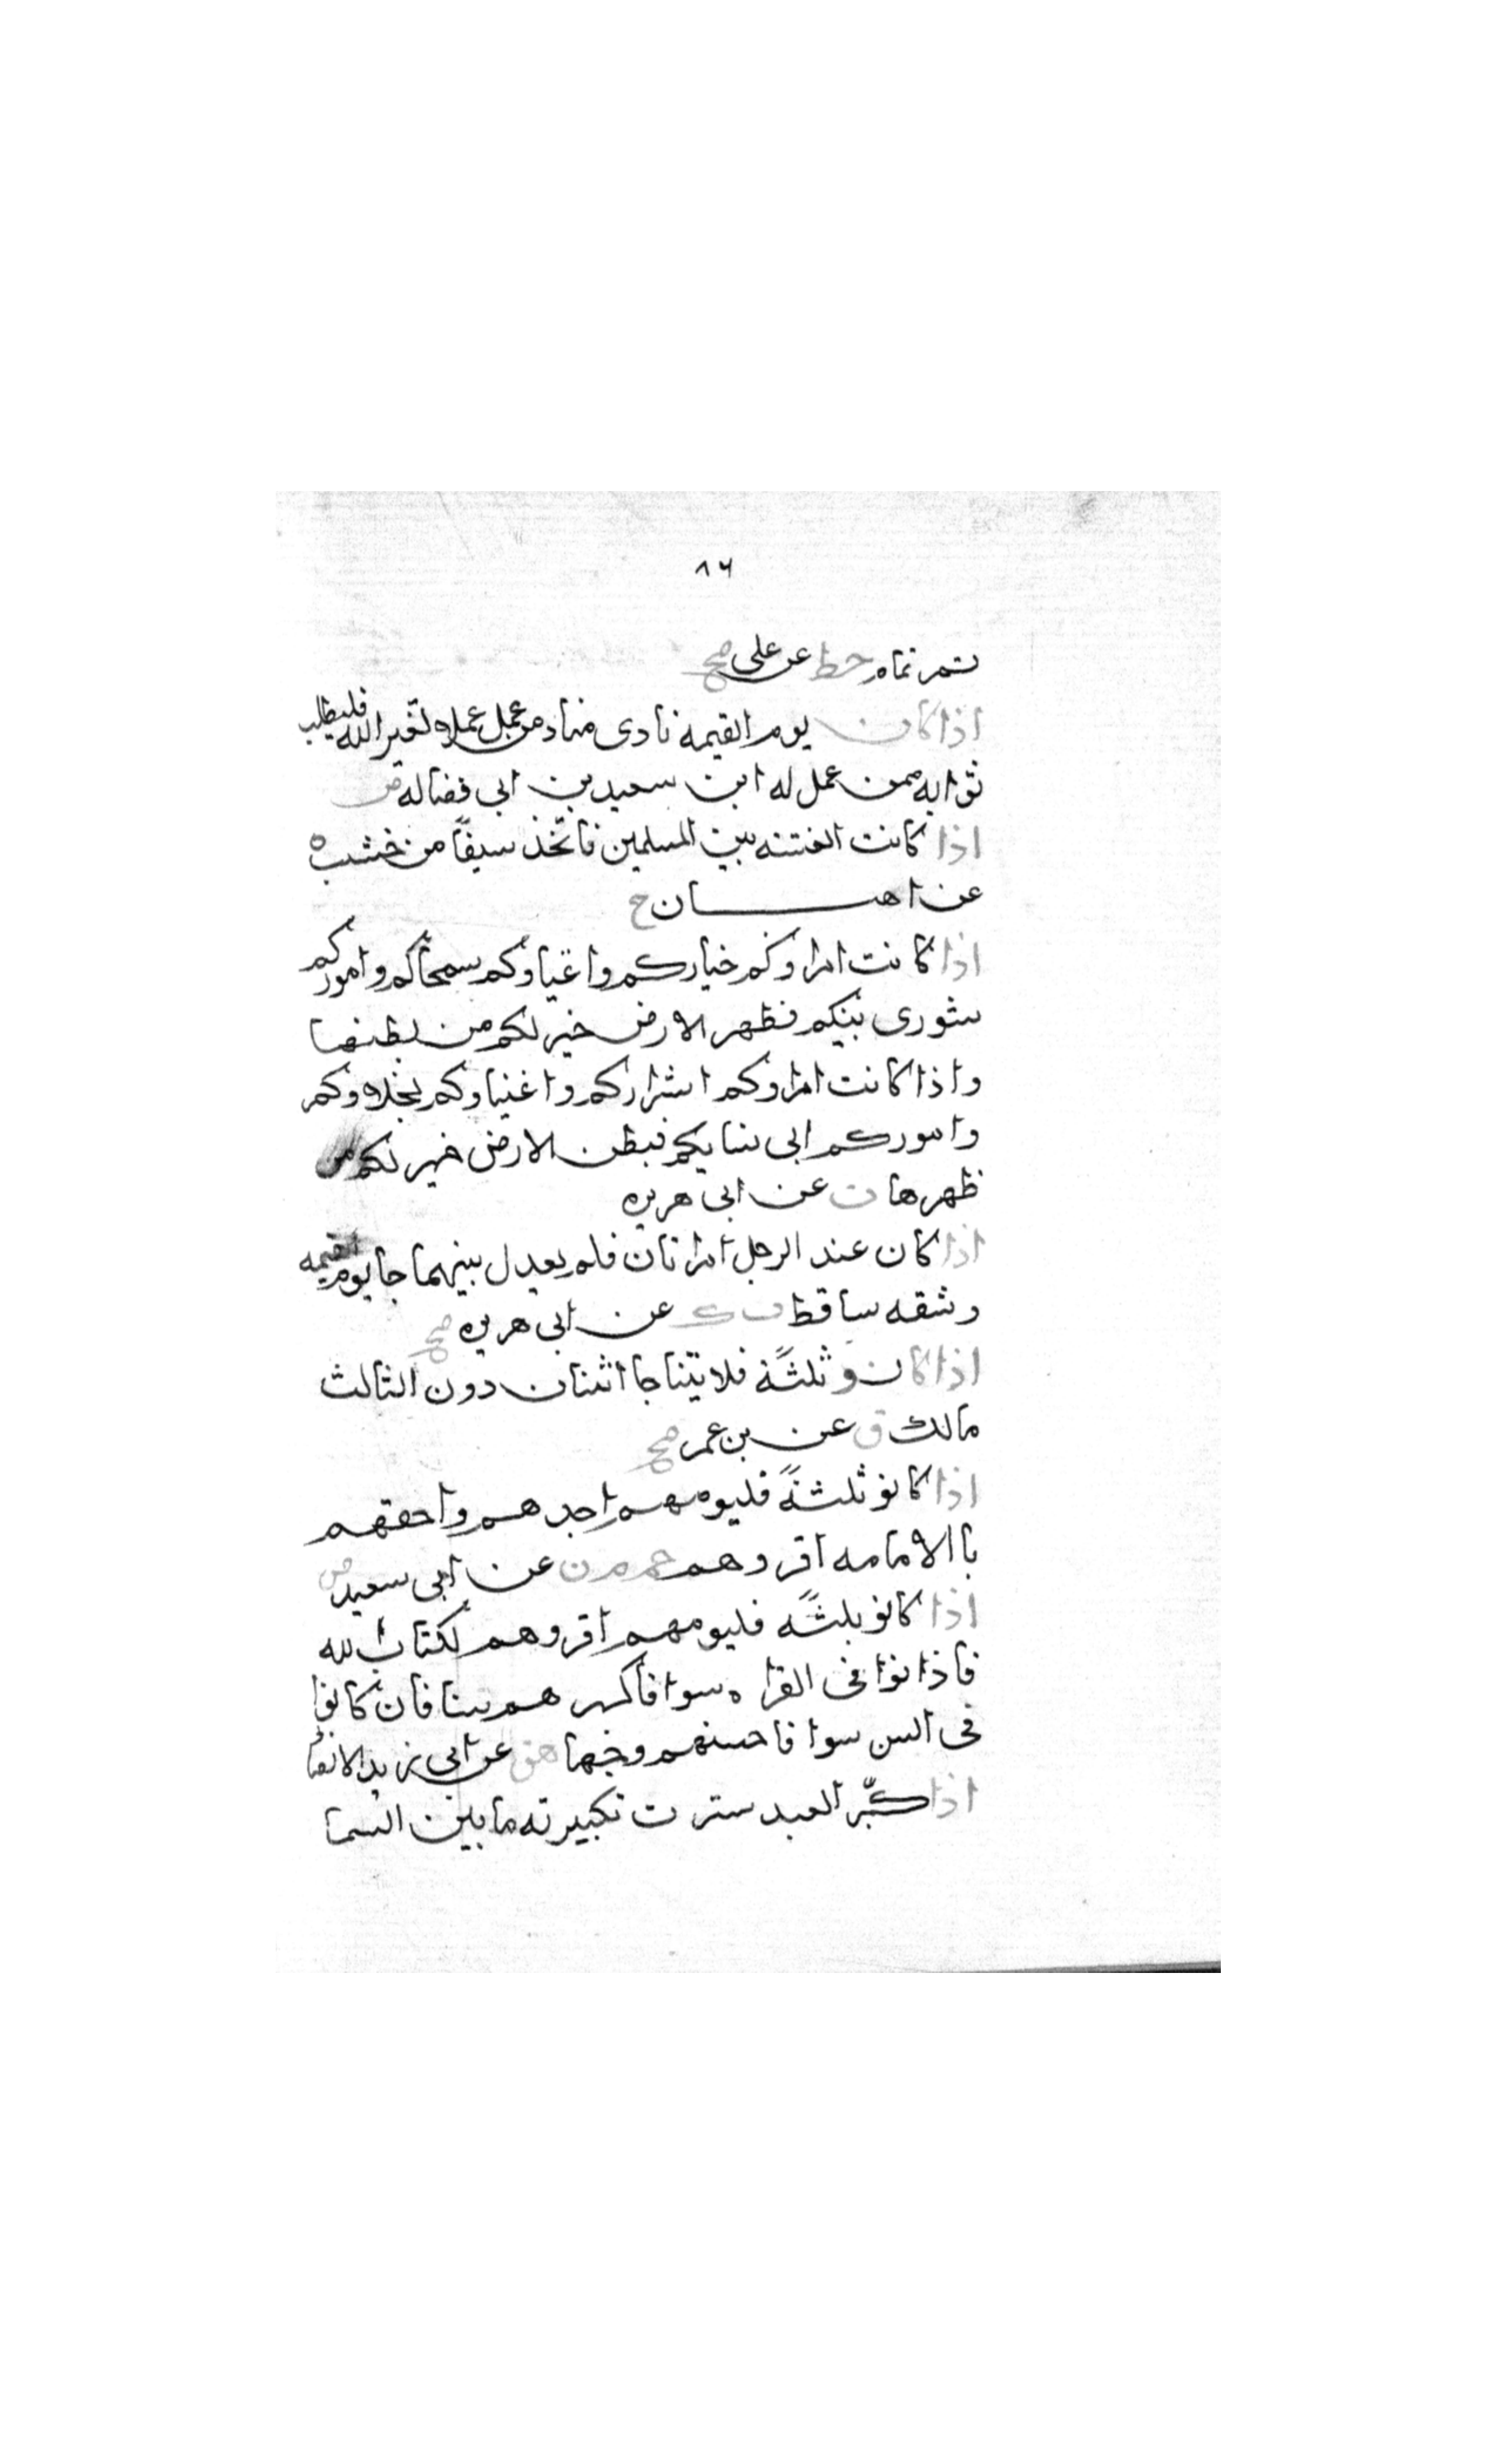 ٨٦
تمر تماه خط عن على صح
اذا كان يوم القيمه نادى مناد من عمل عملاه لغير الله فليطلب
ثوابه ممن عمل له ابن سعيد بن ابى فضاله ض
اذا كانت الفتنه بين المسلمين فاتخذ سيفاً من خشب ه
عن اهبان ح
اذا كانت امراوكم خياركم واغياوكم سمحاكم واموركم
شورى بينكم فظهر الارض خير لكم من بطنها
واذا كانت امراوكم اشراركم واغنياوكم بخلاوكم
واموركم الى نسايكم فبطن الارض خير لكم من
ظهرها ت عن ابى هريره
اذا كان عند الرجل امراتان فلم يعدل بينهما جا يوم القيمه
وشقه ساقط ت ك عن ابى هريره صح
اذا كانو ثلثةً فلا يتناجا اثنان دون الثالث
مالك ق عن بن عمر صح
اذا كانو ثلثةً فليومهم احدهم واحقهم
با الامامه اقروهم حم م ن عن ابى سعيد ض
اذا كانو ثلثةً فليومهم اقروهم لكتاب الله
فاذا نوا فى القراه سوا فاكبرهم سنا فان كانوا
فى السن سوا فاحسنهم وجها هق عن ابى زيد الانصا
اذا كبّر العبد سترت تكبيرته ما بين السما